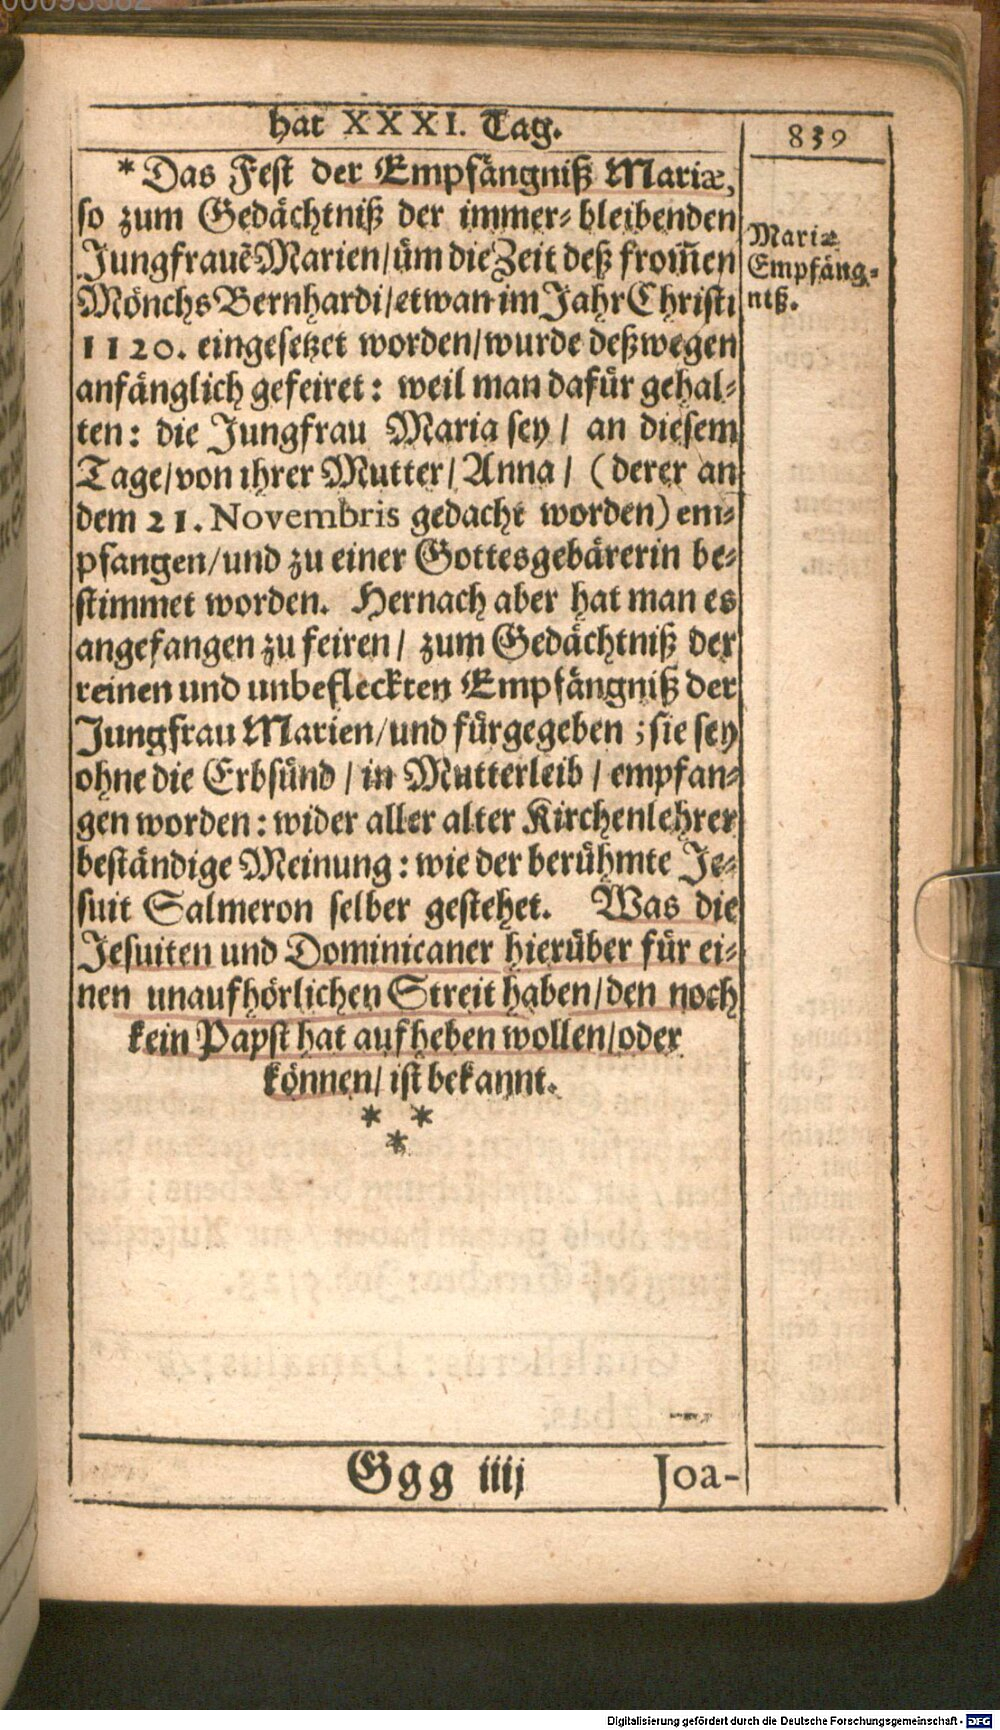 hat XXXI. Tag.
839
* Das Fest der Empfängniß Mariæ,
so zum Gedächtniß der immer-bleibenden
Jungfrauẽ Marien/ üm die Zeit deß from̃en
Mönchs Bernhardi/ etwan im Jahr Christi
1120. eingesetzet worden/ wurde deßwegen
anfänglich gefeiret: weil man dafür gehal-
ten: die Jungfrau Maria sey/ an diesem
Tage/ von ihrer Mutter/ Anna/ (derer an
dem 21. Novembris gedacht worden) em-
pfangen/ und zu einer Gottesgebärerin be-
stimmet worden. Hernach aber hat man es
angefangen zu feiren/ zum Gedächtniß der
reinen und unbefleckten Empfängniß der
Jungfrau Marien/ und fürgegeben; sie sey
ohne die Erbsünd/ in Mutterleib/ empfan-
gen worden: wider aller alter Kirchenlehrer
beständige Meinung: wie der berühmte Je-
suit Salmeron selber gestehet. Was die
Jesuiten und Dominicaner hierüber für ei-
nen unaufhörlichen Streit haben/ den noch
kein Papst hat aufheben wollen/ oder
können/ ist bekannt.
* *
*
Mariæ
Empfäng-
niß.
Ggg iiij
Joa-
Digitalisierung gefördert durch die Deutsche Forschungsgemeinschaft - DFG